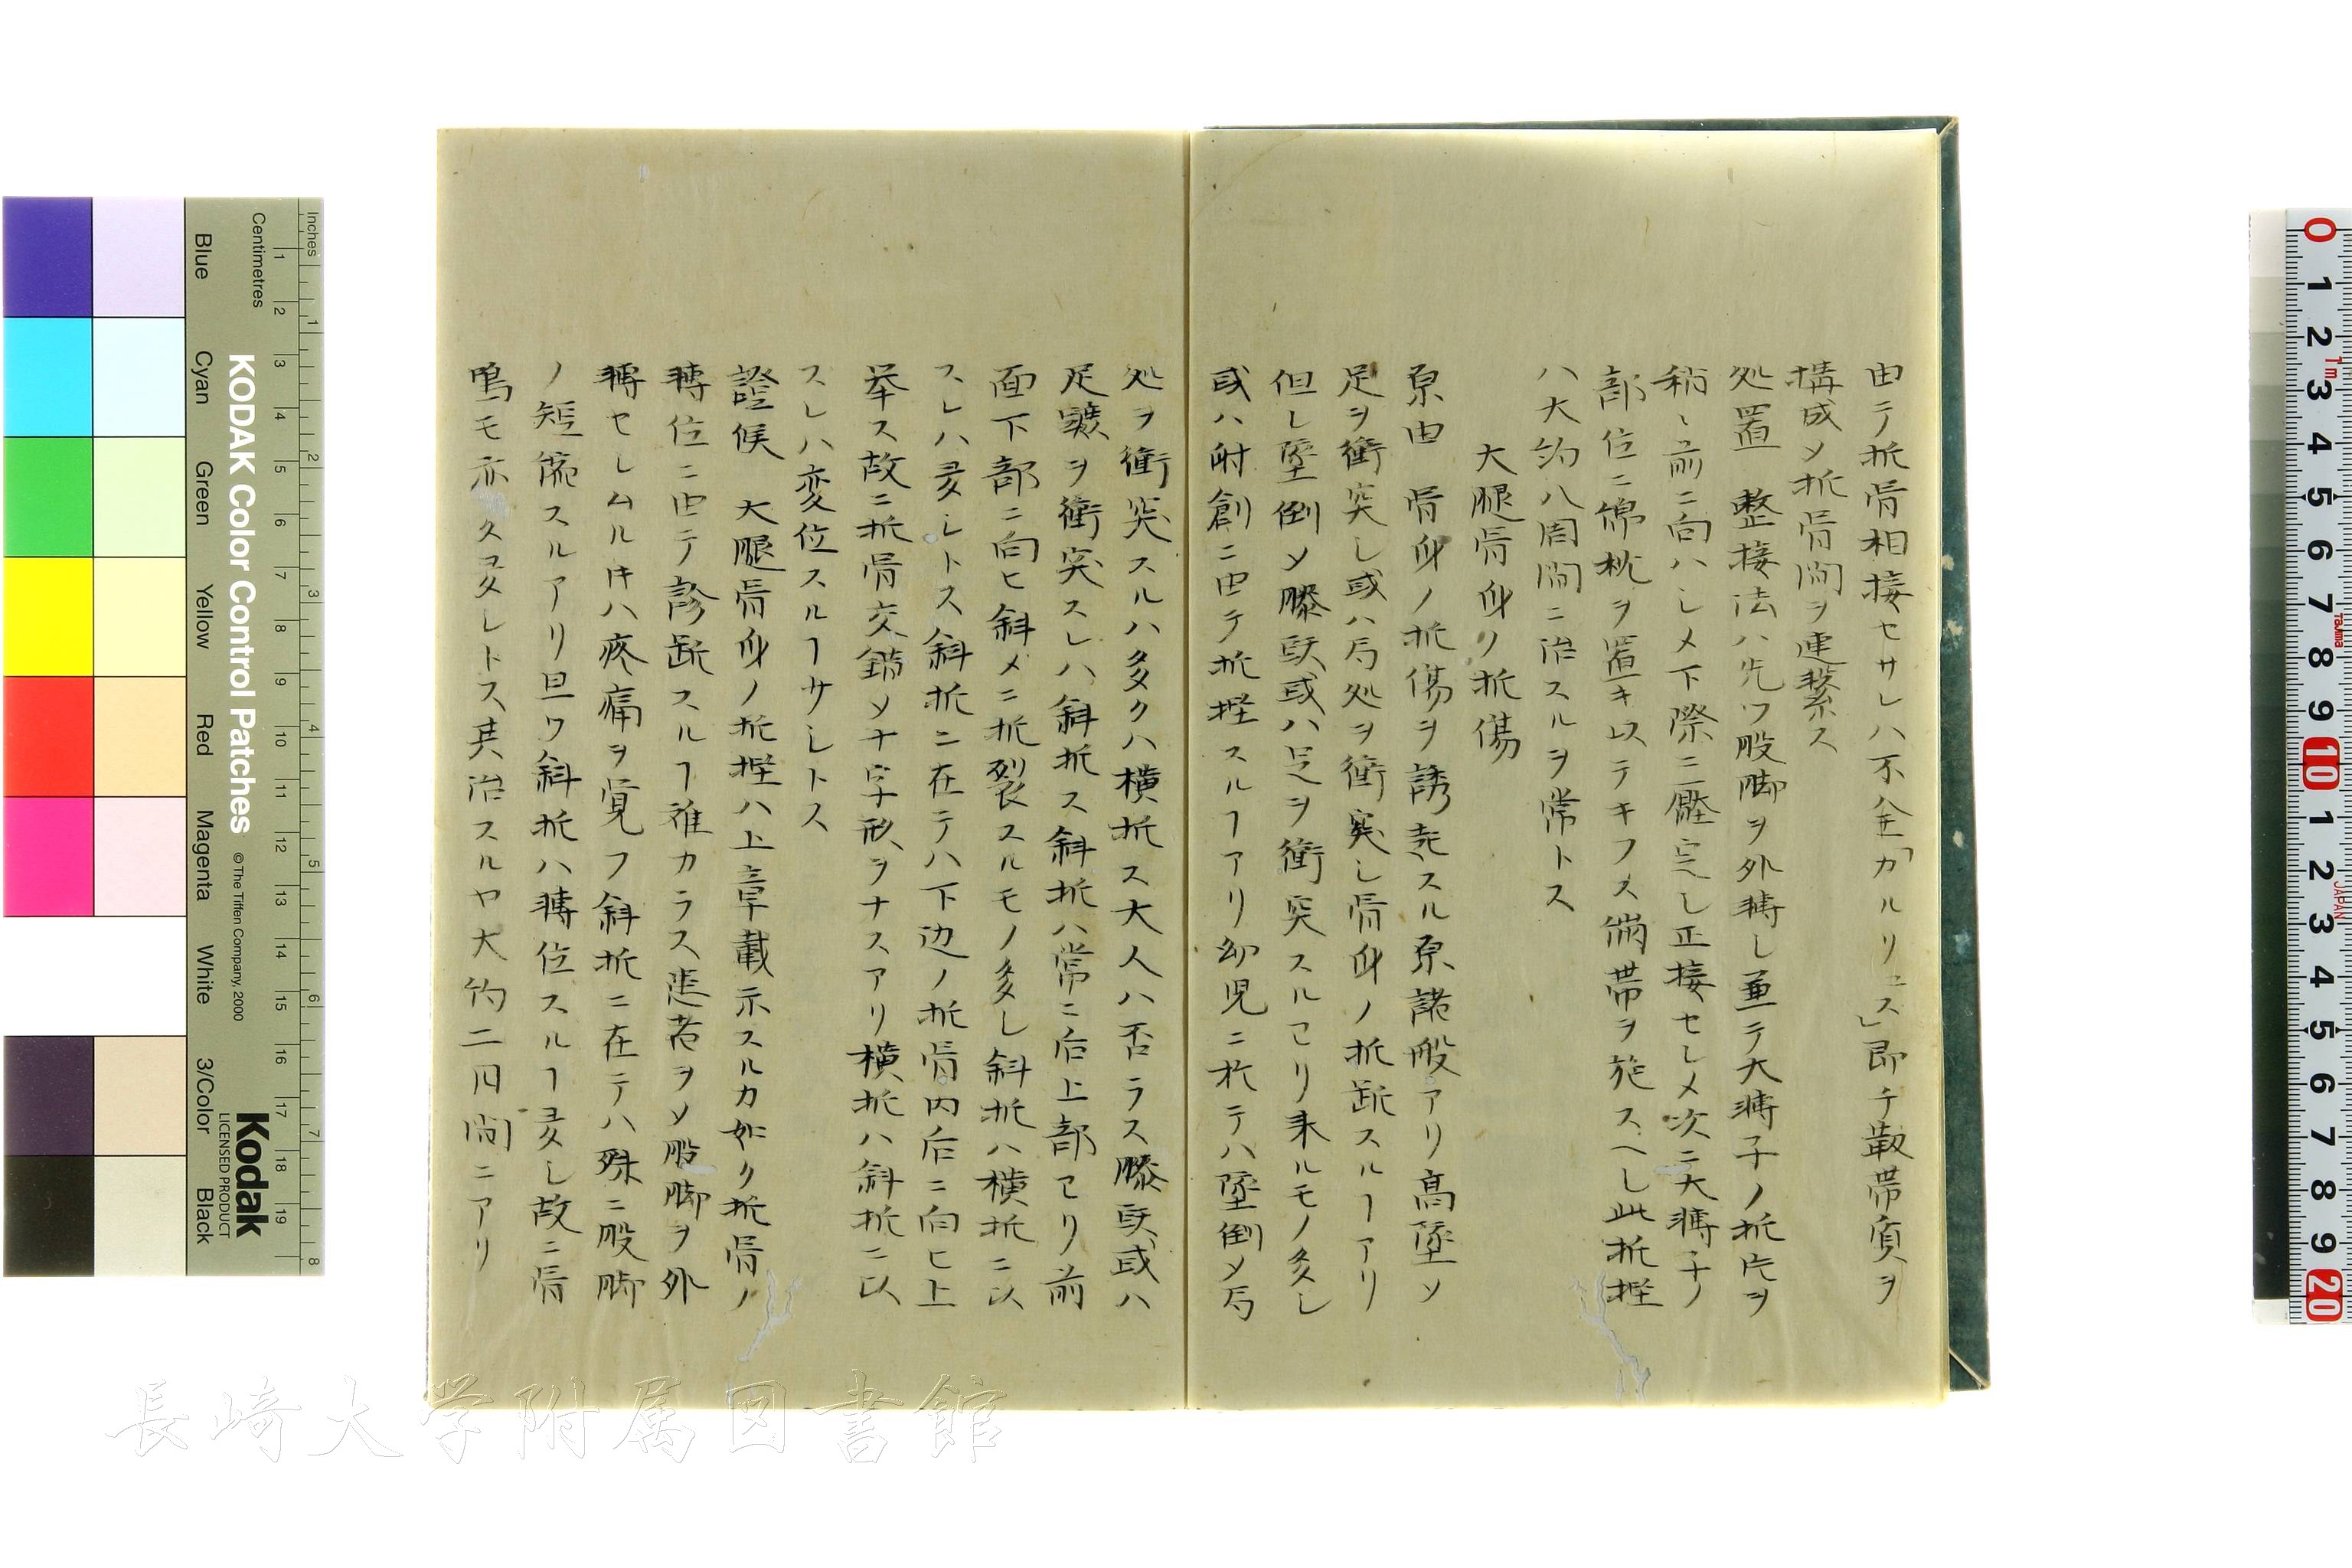 由テ折骨相接セサレハ不全「カルリュス」即チ靱帯質ヲ
構成メ折骨間ヲ連繋ス
処置　整接法ハ先ツ股脚ヲ外轉し並テ大轉子ノ折片ヲ
稍〻前ニ向ハしメ下際ニ定し正接セしメ次ニ大轉子ノ
部位ニ綿枕ヲ置キ以テキフス繃帯ヲ施スヘし此折挫
ハ大約八周間ニ治スルヲ常トス
大腿骨身ノ折傷
原由　骨身ノ折傷ヲ誘起スル原諸般アリ高墜メ
足ヲ衝突し或ハ局処ヲ衝突し骨身ノ折断スルヿアリ
但し墜倒メ膝頭或ハ足ヲ衝突スルヨリ来ルモノ多し
或ハ射創ニ由テ折挫スルヿアリ幼児ニ於テハ墜倒メ局
処ヲ衝突スルハ多クハ横折ス大人ハ否ラス膝頭或ハ
足蹠ヲ衝突スレハ斜折ス斜折ハ常ニ后上部ヨリ前
面下部ニ向ヒ斜メニ折裂スルモノ多し斜折ハ横折ニ以
スレハ多しトス斜折ニ在テハ下辺ノ折骨内后ニ向ヒ上
挙ス故ニ折骨交錯メ十字形ヲナスアリ横折ハ斜折ニ以
スレハ変位スルヿ少しトス
證候　大腿骨身ノ折挫ハ上章載示スルカ如ク折骨ノ
轉位ニ由テ診断スルヿ難カラス患者ヲメ股脚ヲ外
轉セしムル時ハ疼痛ヲ覚フ斜折ニ在テハ殊ニ股脚
ノ短縮スルアリ且ツ斜折ハ轉位スルヿ多し故ニ骨
鳴モ亦タ多しトス其治スルヤ大約二月間ニアリ
KODAK Color Control Patches
©The Tiffen Company, 2000
Kodak
LICENSED PRODUCT
Inches
Centimetres
Blue
Cyan
Green
Yellow
Red
Magenta
White
3/Color
Black
長崎大学附属図書館